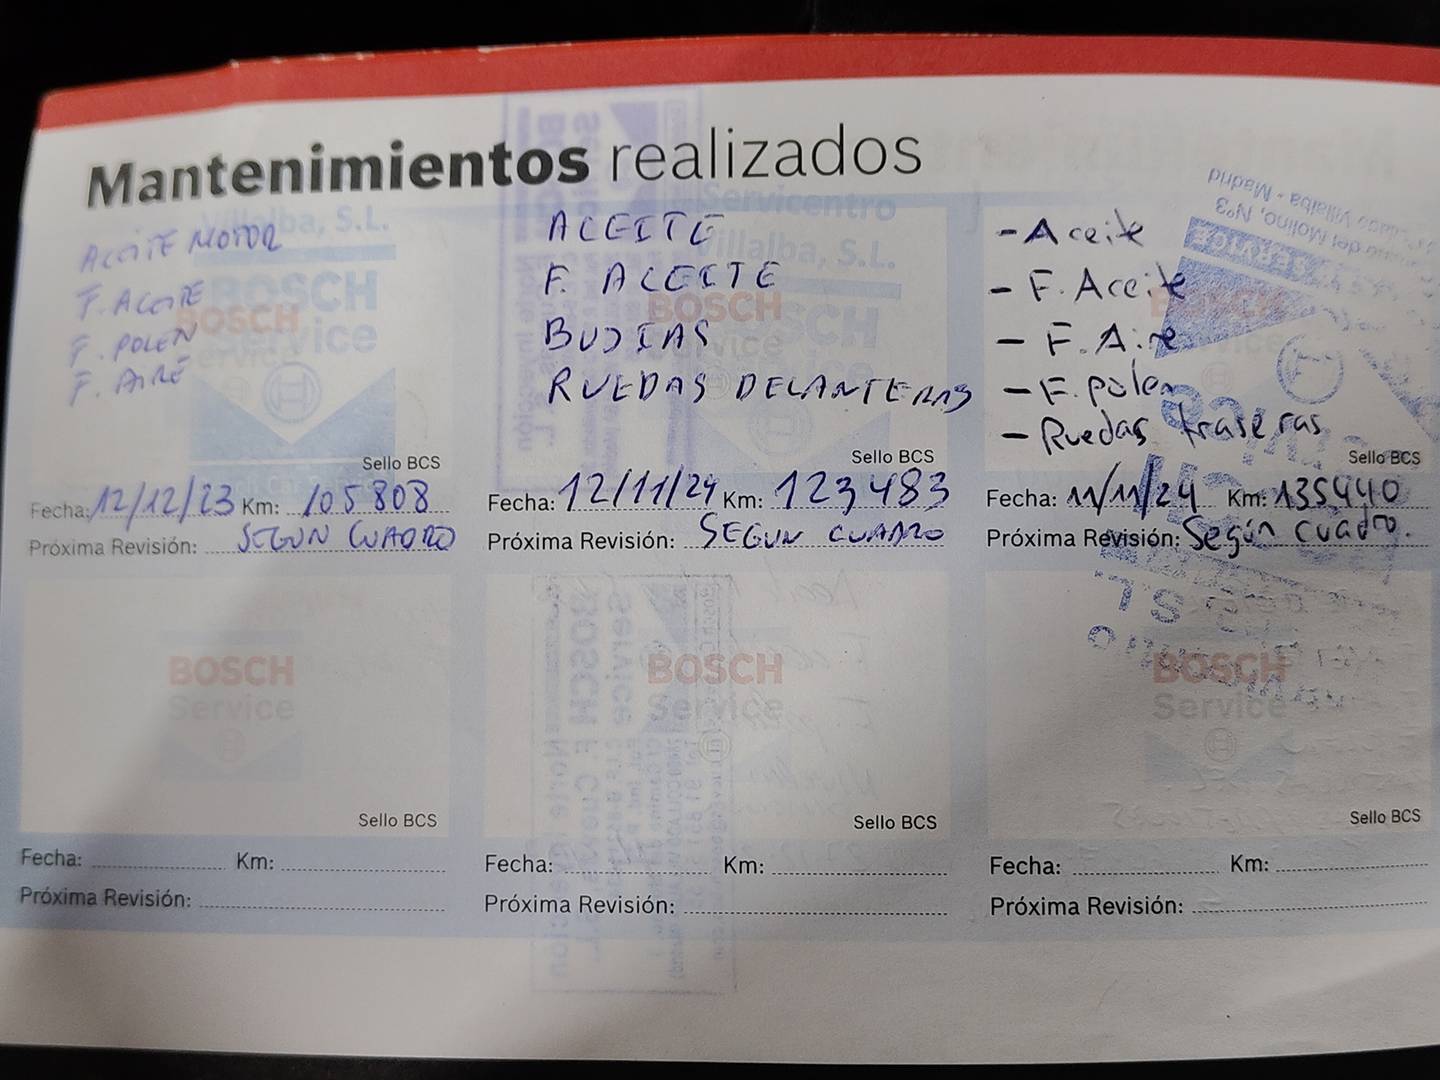 Mantenimientos realizados
ACEITE MOTOR
F. ACEITE
F. POLEN
F. AIRE
BOSCH
Service
Sello BCS
Fecha: 12/12/23 Km: 105808
Próxima Revisión: SEGUN CUADRO
ACEITE
F. ACEITE
BUJIAS
RUEDAS DELANTERAS
BOSCH
Service
Sello BCS
Fecha: 12/11/24 Km: 123483
Próxima Revisión: SEGUN CUADRO
- Aceite
- F. Aceite
- F. Aire
- F. polen
- Ruedas traseras
Sello BCS
Fecha: 11/11/24 Km: 135440
Próxima Revisión: Según cuadro.
BOSCH
Service
Sello BCS
Fecha: Km:
Próxima Revisión:
BOSCH
Service
Sello BCS
Fecha: Km:
Próxima Revisión:
BOSCH
Service
Sello BCS
Fecha: Km:
Próxima Revisión: